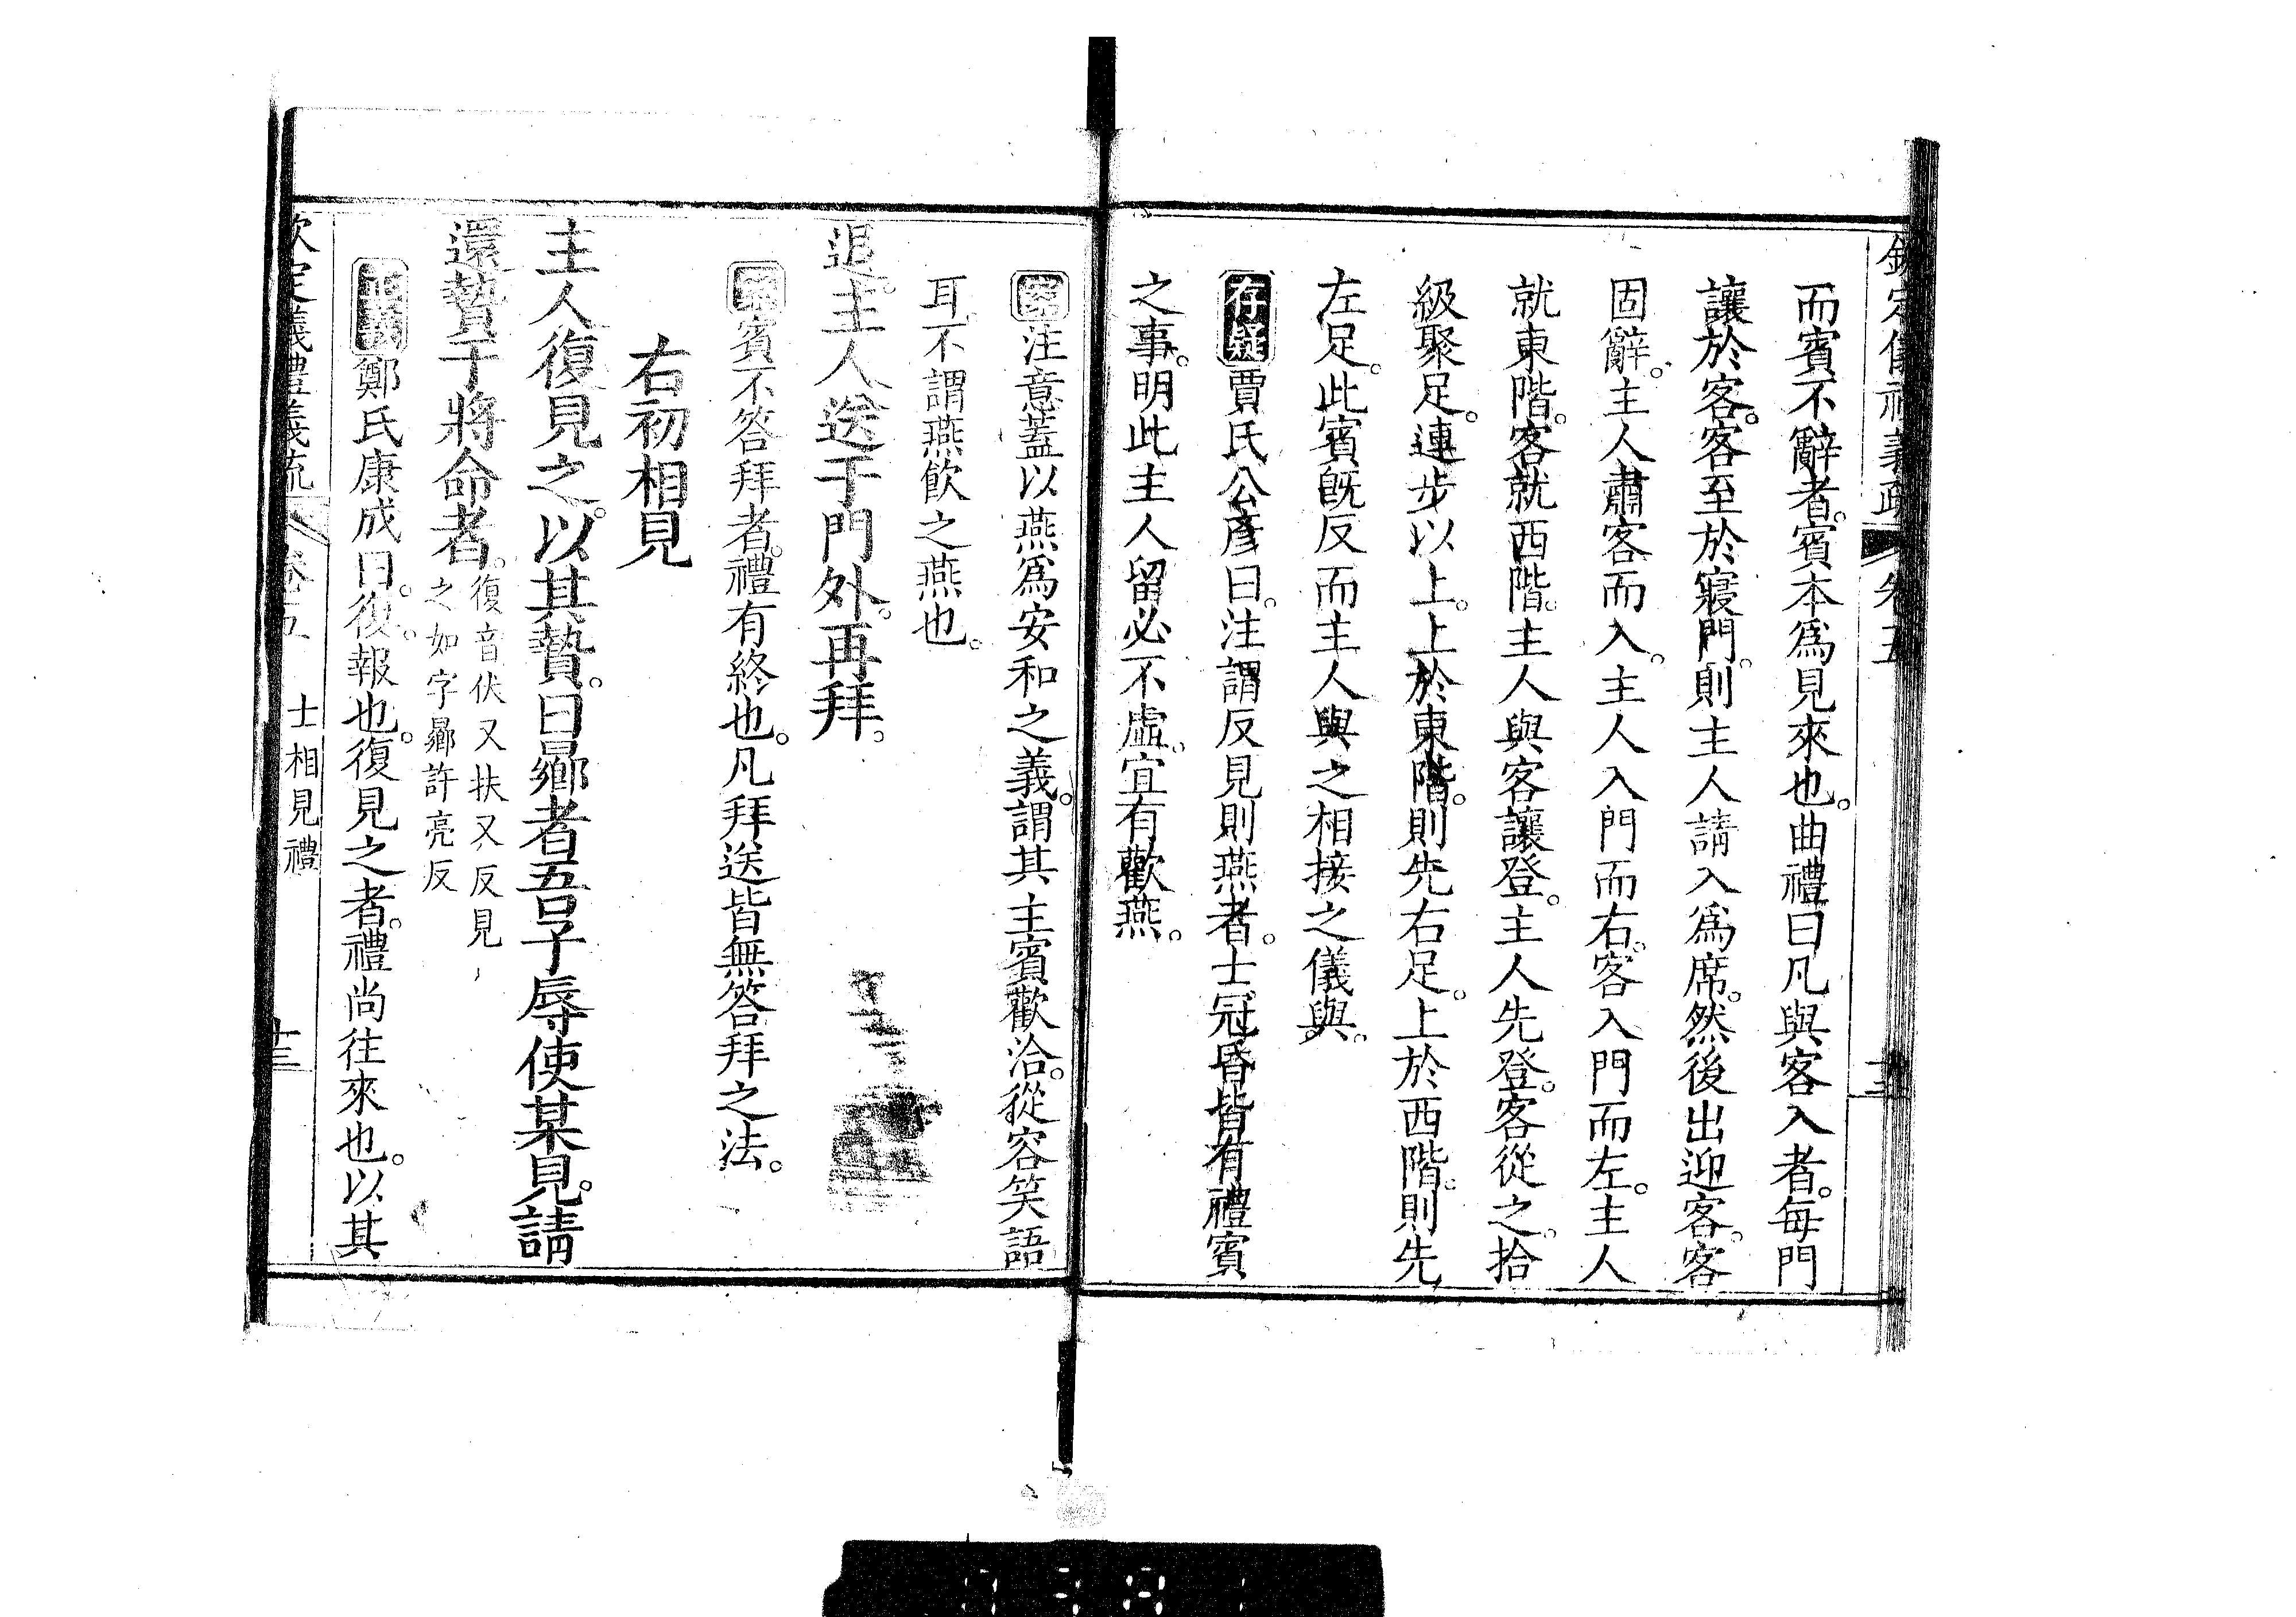 欽定儀禮義疏 卷五 十三
而賓不辭者。賓本為見來也。曲禮曰凡與客入者。每門
讓於客。客至於寢門。則主人請入為席。然後出迎客。客
固辭。主人肅客而入。主人入門而右。客入門而左。主人
就東階。客就西階。主人與客讓登。主人先登。客從之。拾
級聚足。連步以上。上於東階。則先右足。上於西階。則先
左足。此賓旣反而主人與之相接之儀與。
存疑賈氏公彥曰。注謂反見則燕者。士冠昏皆有禮賓
之事。明此主人留必不虛。宜有歡燕。
案注意蓋以燕為安和之義。謂其主賓歡洽。從容笑語
耳。不謂燕飲之燕也。
退。主人送于門外。再拜。
賓不答拜者。禮有終也。凡拜送皆無答拜之法。
右初相見
主人復見之。以其贄。曰曏者吾子辱使某見。請
還贄于將命者。復音伏又扶又反見
之如字曏許亮反
正義鄭氏康成曰。復。報也。復見之者。禮尚往來也。以其
欽定儀禮義疏 卷五 士相見禮 十三